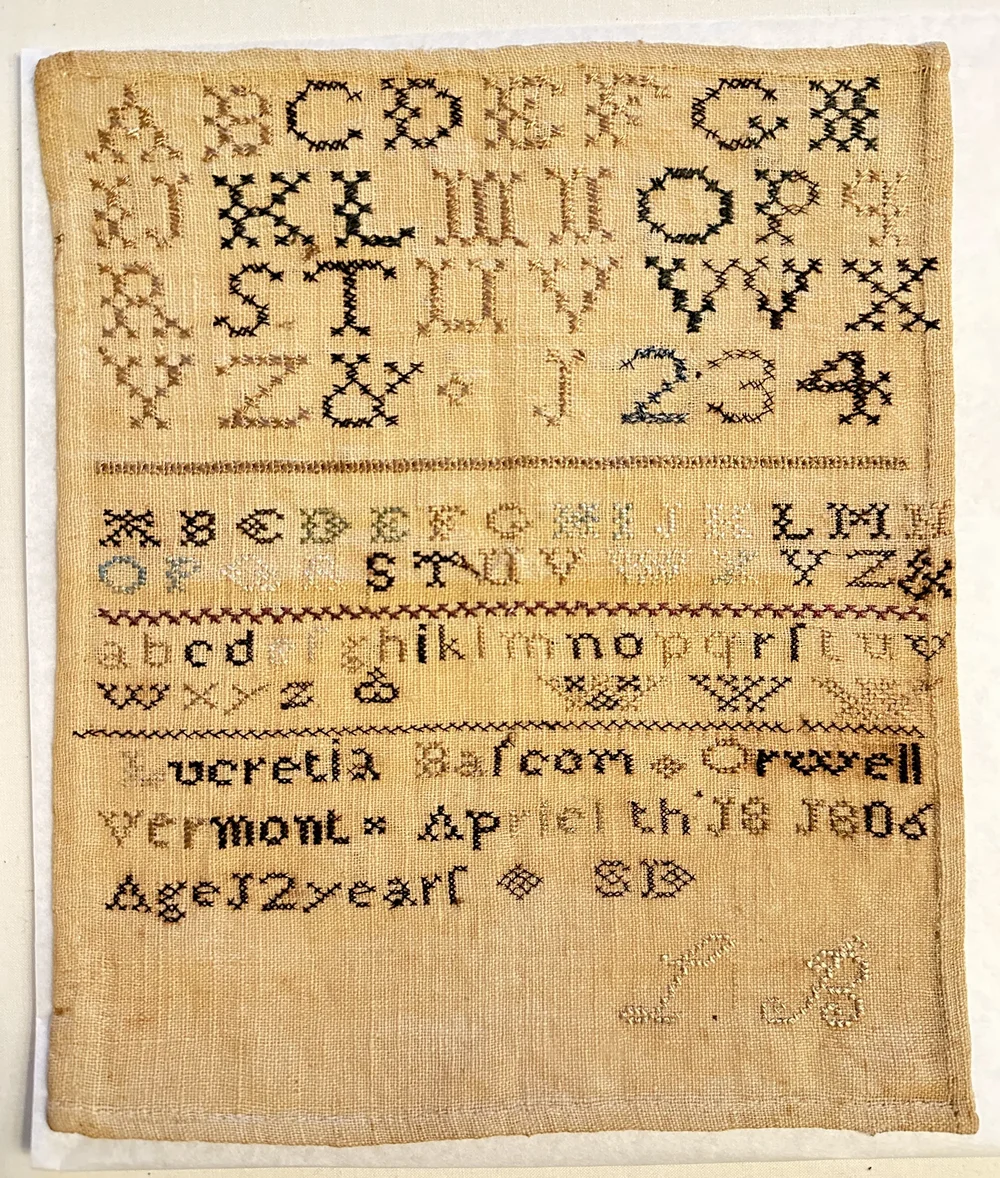 A B C D E F G H
I J K L M N O P Q
R S T U V W X
Y Z & J 2 3 4
A B C D E F G H I J K L M N
O P Q R S T U V W X Y Z &
a b c d e f g h i k l m n o p q r ſ t u v
w x y z &
Lucretia Baſcom Orwell
Vermont × Apriel th J8 J806
Age J2 yearſ SB
L B